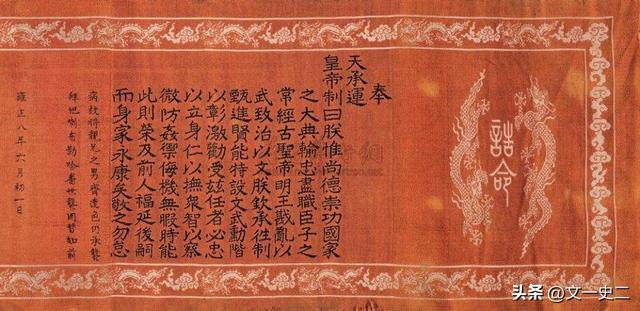 誥命
奉
天承運
皇帝制曰朕惟尚德崇功國家
之大典輸忠盡職臣子之
常經古聖帝明王戡亂以
武致治以文朕欽承往制
甄進賢能特設文武勳階
以彰激勸受茲任者必忠
以立身仁以撫眾智以察
微防姦禦侮機無暇時能
此則榮及前人福延後嗣
而身家永康矣敬之勿怠
病故將親兄之男齊達色仍承襲
拜他喇布勒哈番世襲罔替如前
雍正八年六月初一日
头条 @文一史二